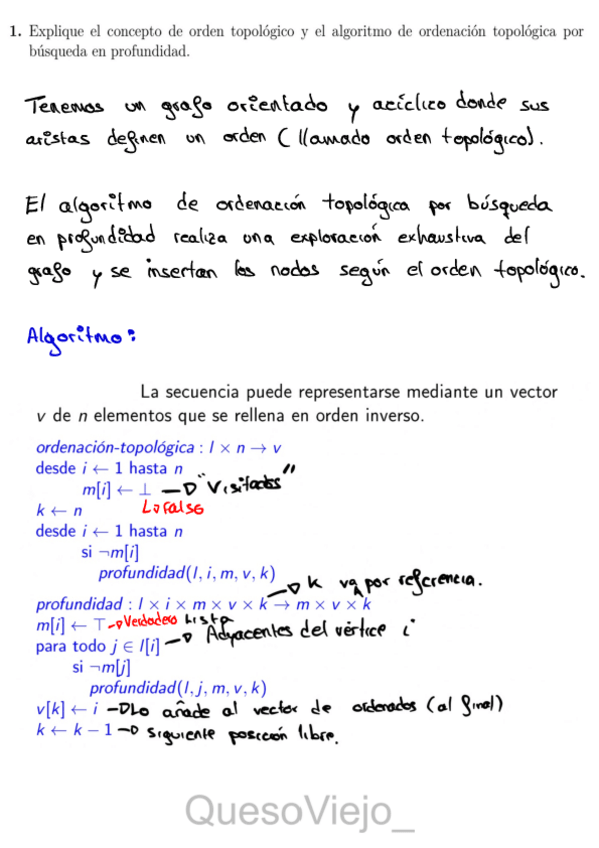 1. Explique el concepto de orden topológico y el algoritmo de ordenación topológica por
búsqueda en profundidad.
Tenemos un grafo orientado y acíclico donde sus
aristas definen un orden (llamado orden topológico).
El algoritmo de ordenación topológica por búsqueda
en profundidad realiza una exploración exhaustiva del
grafo y se insertan los nodos según el orden topológico.
Algoritmo:
La secuencia puede representarse mediante un vector
v de n elementos que se rellena en orden inverso.
ordenación-topológica : l × n → v
desde i ← 1 hasta n
m[i] ← ⊥ → "Visitados"
k ← n ↳ False
desde i ← 1 hasta n
si ¬m[i]
profundidad(l, i, m, v, k)
→ k va por referencia.
profundidad : l × i × m × v × k → m × v × k
m[i] ← ⊤ → Verdadero Lista
para todo j ∈ l[i] → Adyacentes del vértice i
si ¬m[j]
profundidad(l, j, m, v, k)
v[k] ← i → Lo añade al vector de ordenados (al final)
k ← k − 1 → siguiente posición libre.
QuesoViejo_